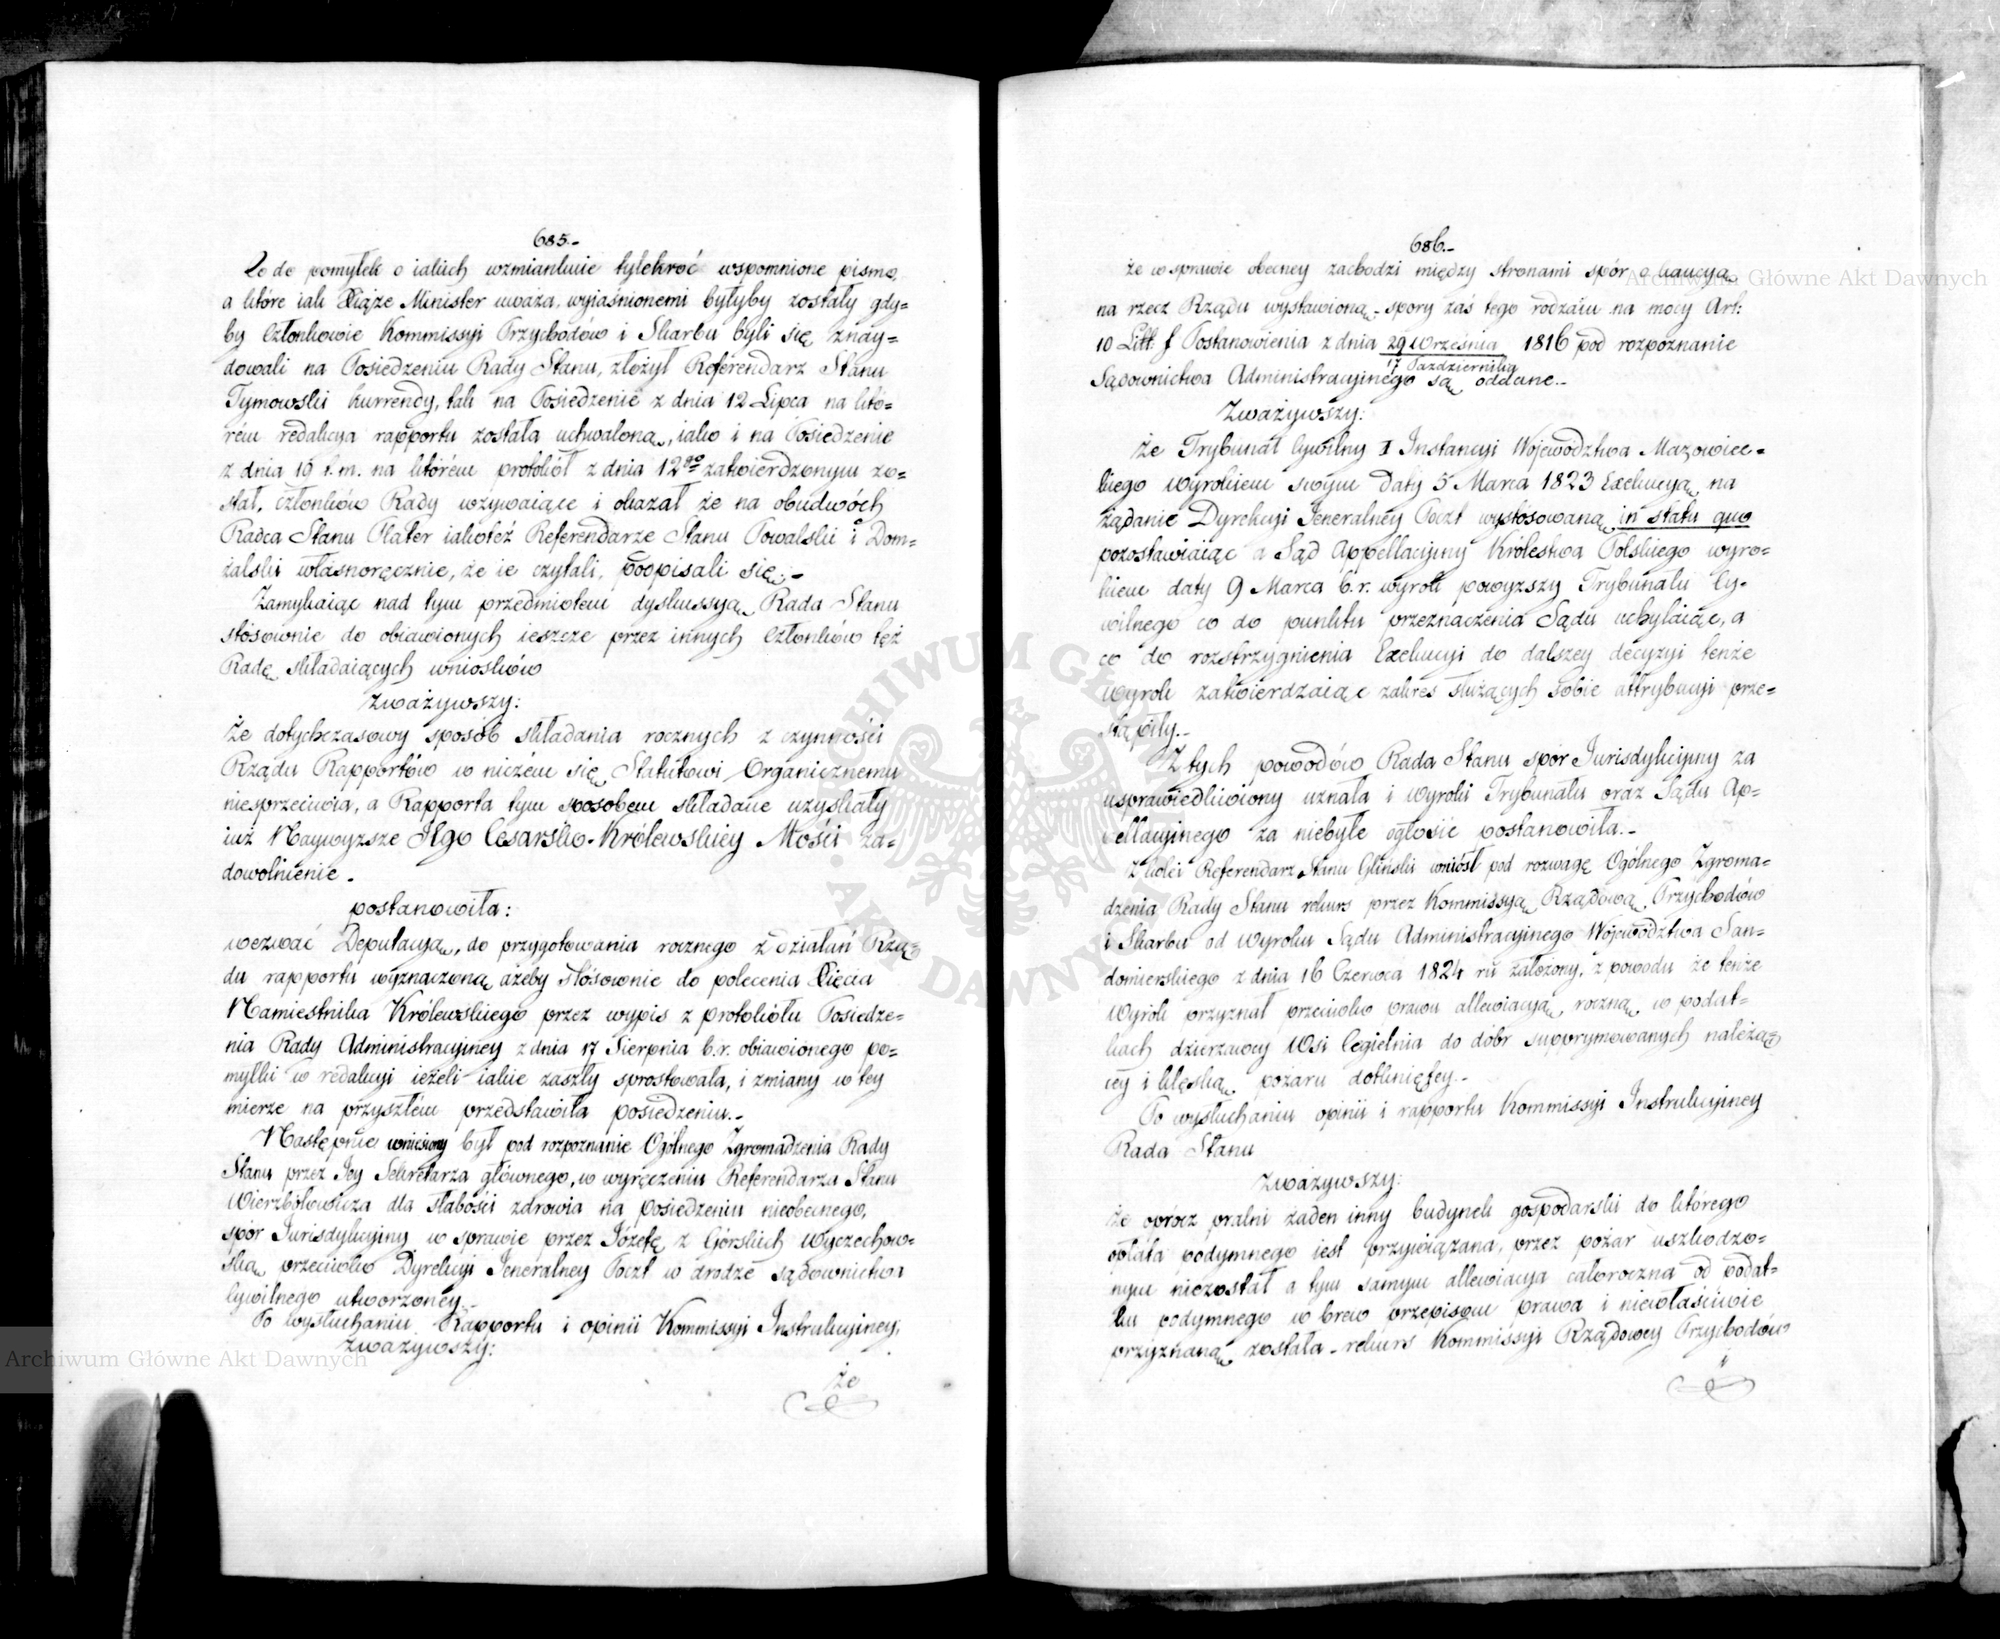 685.-
Co do pomyłek o iakich wzmiankuie tylekroć wspomnione pismo,
a które iak Xiąże Minister uważa, wyiaśnionemi byłyby zostały gdy-
by Członkowie Kommissyi Przychodów i Skarbu byli się znay-
dowali na Posiedzeniu Rady Stanu, złożył Referendarz Stanu
Tymowski kurrendy, tak na Posiedzenie z dnia 12 Lipca na któ-
rém redakcya rapportu została uchwaloną, iako i na Posiedzenie
z dnia 16 t.m. na którém protokół z dnia 12go zatwierdzonym zo-
stał, członków Rady wzywaiące i okazał że na obudwóch
Radca Stanu Plater iakoteż Referendarze Stanu Powalski i Dom-
żalski własnoręcznie, że ie czytali, podpisali się.-
Zamykaiąc nad tym przedmiotem dyskussyą Rada Stanu
stósownie do obiawionych ieszcze przez innych Członków też
Radę składaiących wniosków
Zważywszy:
Że dotychczasowy sposób składania rocznych z czynności
Rządu Rapportów w niczém się Statutowi Organicznemu
niesprzeciwia, a Rapporta tym sposobem składane uzyskały
iuż Naywyższe Jego Cesarsko-Królewskiey Mości za-
dowolnienie.
postanowiła:
wezwać Deputacyą, do przygotowania rocznego z działań Rzą-
du rapportu wyznaczoną ażeby stósownie do polecenia Xięcia
Namiestnika Królewskiego przez wypis z protokółu Posiedze-
nia Rady Administracyiney z dnia 17 Sierpnia b.r. obiawionego po-
myłki w redakcyi ieżeli iakie zaszły sprostowała, i zmiany w tey
mierze na przyszłém przedstawiła posiedzeniu.-
Następnie wniesiony był pod rozpoznanie Ogólnego Zgromadzenia Rady
Stanu przez Jey Sekretarza głównego, w wyręczeniu Referendarza Stanu
Wierzbołowicza dla słabości zdrowia na posiedzeniu nieobecnego,
spór Jurisdykcyiny w sprawie przez Józefę z Górskich Wyczechow-
ską przeciwko Dyrekcyi Jeneralney Poczt w drodze sądownictwa
Cywilnego utworzoney.-
Po wysłuchaniu Rapportu i opinii Kommissyi Instrukcyiney,
Zważywszy:
Że
686.-
że w sprawie obecney zachodzi między stronami spór o kaucyą
na rzecz Rządu wystawioną,- spory zaś tego rodzaiu na mocy Art:
10 Litt. f Postanowienia z dnia 29 Września 1816 pod rozpoznanie
17 Października
Sądownictwa Administracyinego są oddane.-
Zważywszy:
Że Trybunał Cywilny I Instancyi Województwa Mazowiec-
kiego wyrokiem swym daty 5 Marca 1823 Exekucyą na
żądanie Dyrekcyi Jeneralney Poczt wystósowaną in statu quo
pozostawiaiąc a Sąd Appellacyiny Królestwa Polskiego wyro-
kiem daty 9 Marca b.r. wyrok powyższy Trybunału Cy-
wilnego co do punktu przeznaczenia Sądu uchylaiąc, a
co do rozstrzygnienia Exekucyi do dalszey decyzyi tenże
wyrok zatwierdzaiąc zakres służących sobie attrybucyi prze-
stąpiły.-
Z tych powodów Rada Stanu spór Jurisdykcyiny za
usprawiedliwiony uznała i wyroki Trybunału oraz Sądu Ap-
pellacyinego za niebyłe ogłosić postanowiła.-
Z kolei Referendarz Stanu Gliński wniósł pod rozwagę Ogólnego Zgroma-
dzenia Rady Stanu rekurs przez Kommissyą Rządową Przychodów
i Skarbu od Wyroku Sądu Administracyinego Województwa San-
domierskiego z dnia 16 Czerwca 1824 ru założony, z powodu że tenże
Wyrok przyznał przeciwko prawu allewiacyą roczną w podat-
kach dzierżawcy Wsi Cegielnia do dóbr supprymowanych należą-
cey i klęską pożaru dotkniętey.-
Po wysłuchaniu opinii i rapportu Kommissyi Instrukcyiney
Rada Stanu
Zważywszy:
Że oprócz pralni żaden inny budynek gospodarski do którego
opłata podymnego iest przywiązana, przez pożar uszkodzo-
nym niezostał a tym samym allewiacya całoroczna od podat-
ku podymnego wbrew przepisom prawa i niewłaściwie
przyznaną została - rekurs Kommissyi Rządowey Przychodów
i
Archiwum Główne Akt Dawnych
Archiwum Główne Akt Dawnych
ARCHIWUM GŁÓWNE AKT DAWNYCH